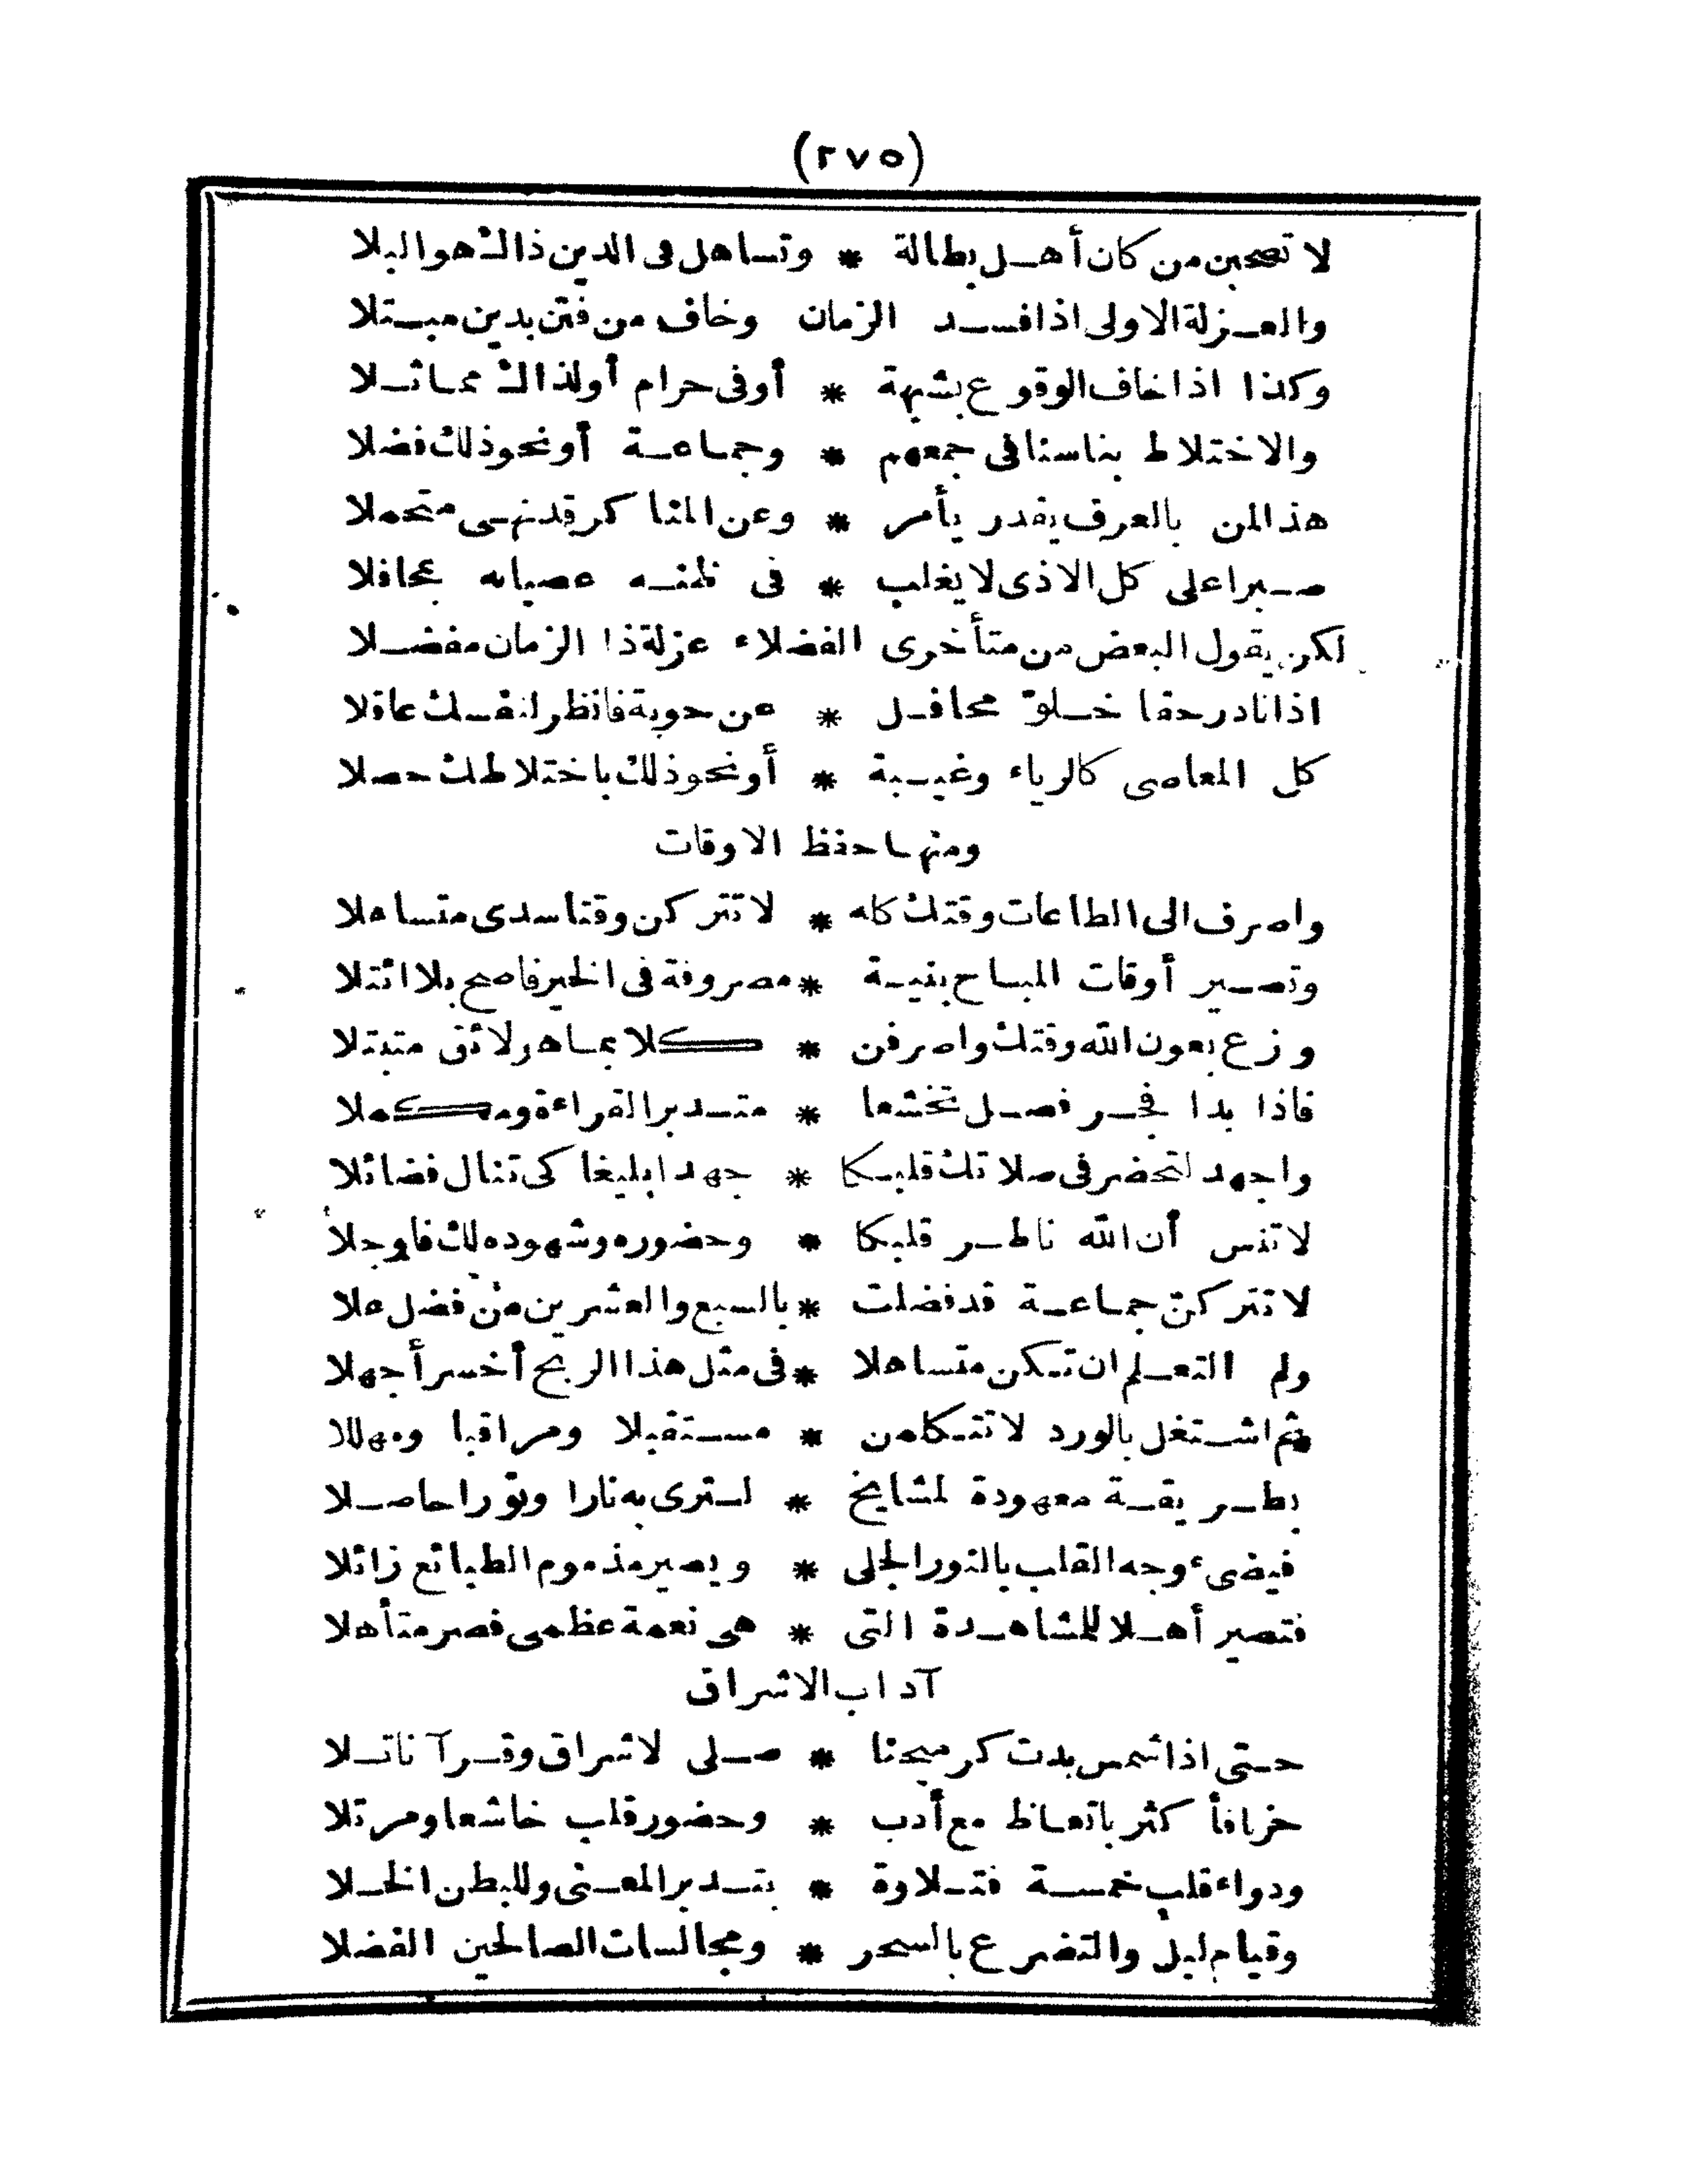 (٢٧٥)
لا تصحبن من كان أهـل بطالة * وتساهل فى الدين ذاك هو البلا
والعـزلة الاولى اذا فسـد الزمان وخاف من فتن بدين مبـتلا
وكذا اذا خاف الوقوع بشبهة * أو فى حرام أولذاك ممـاثـلا
والاختلاط بناسنا فى جمعهم * وجمـاعـة أو نحو ذلك فضلا
هذا لمن بالعرف يقدر يأمر * وعن المناكر قد نهـى متحملا
صـبرا على كل الاذى لا يغلب * فى ظنـه عصيانه بمحافلا
لكن يقول البعض من متأخرى الفضلاء عزلة ذا الزمان مفضـلا
اذ نادر حقا خـلو محافـل * عن حوبة فانظر لنفـسك عاقلا
كل المعاصى كالرياء وغيـبة * أو نحو ذلك باختلاطك حصلا
ومنهـا حفظ الاوقات
واصرف الى الطاعات وقتك كله * لا تتركن وقتا سدى متساهلا
وتصـير أوقات المبـاح بنيـة * مصروفة فى الخير فاصح بلا ائتلا
وزع بعون الله وقتك واصرفن * كلا بمـا هو لائق متبتلا
فاذا بدا فجـر فصـل تخشعا * متـدبر القراءة ومكملا
واجهد لتحضر فى صلاتك قلبـكا * جهدا بليغا كى تنال فضائلا
لا تنس أن الله ناظـر قلبكا * وحضوره وشهوده لك فاوجلا
لا تتركن جمـاعـة قد فضلت * بالسبع والعشرين من فضل علا
ولم التعـلم ان تـكن متساهلا * فى مثل هذا الربح أخسر أجهلا
ثم اشـتغل بالورد لا تتـكلمن * مسـتقبلا ومراقبا ومهللا
بطـريقـة معهودة لمشايخ * لـترى به نارا ونورا حاصـلا
فيضىء وجه القلب بالنور الجلى * ويصير مذموم الطبائع زائلا
فتصير أهـلا للمشاهـدة التى * هى نعمة عظمى فصر متأهلا
آداب الاشراق
حـتى اذا شمس بدت كرميحنا * صـلى لاشراق وقـرآنا تـلا
حزبا فأكثر باتعـاظ مع أدب * وحضور قلب خاشعا ومرتلا
ودواء قلب خمسـة فتـلاوة * بتـدبر المعـنى وللبطن الخـلا
وقيام ليل والتضرع بالسحر * ومجالسات الصالحين الفضلا